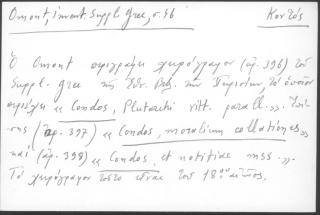 Omont, invent. Suppl. grec, σ. 46 Κοντός
Ὁ Omont περιγράφει χειρόγραφον (ἀρ. 396) τοῦ
Suppl. grec τῆς Ἐθν. Βιβ. τῶν Παρισίων, τὸ ὁποῖον
περιέχει « Condos, Plutarchi vitt. parall. ». Ἐπί-
σης (ἀρ. 397) « Condos, moralium collationes »
καὶ (ἀρ. 398) « Condos, et notitiae mss. ».
Τὸ χειρόγραφον τοῦτο εἶναι τοῦ 18ου αἰῶνος.